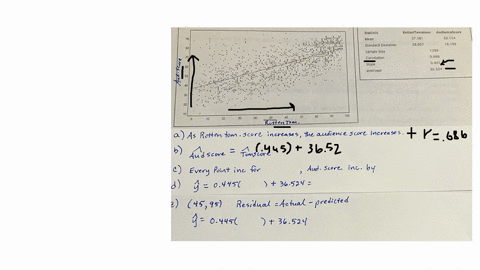 Statistic RottenTomatoes AudienceScore
Mean
Standard Deviation
Sample Size
Correlation
Slope
Intercept
Aud. Score
Rotten Tom.
a) As Rotten tom. score increases, the audience score increases. + r=.686
b) Aud score = Tom score (.445) + 36.52
c) Every Point inc for , Aud. score Inc. by
d) ŷ = 0.445( ) + 36.524 =
(45, 95) Residual = Actual - predicted
ŷ = 0.445( ) + 36.524